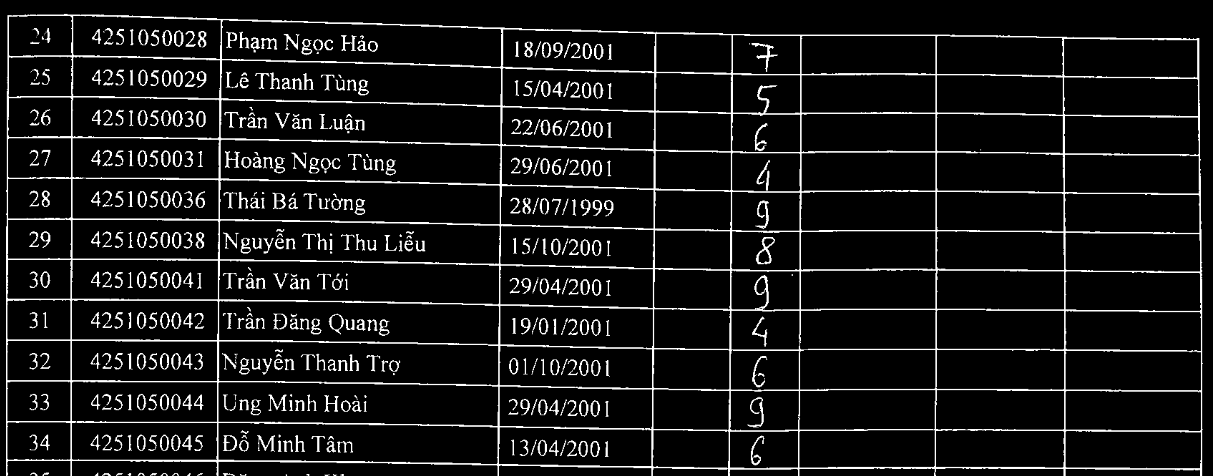 24 4251050028 Phạm Ngọc Hảo 18/09/2001 7
25 4251050029 Lê Thanh Tùng 15/04/2001 5
26 4251050030 Trần Văn Luận 22/06/2001 6
27 4251050031 Hoàng Ngọc Tùng 29/06/2001 4
28 4251050036 Thái Bá Tường 28/07/1999 9
29 4251050038 Nguyễn Thị Thu Liễu 15/10/2001 8
30 4251050041 Trần Văn Tới 29/04/2001 9
31 4251050042 Trần Đăng Quang 19/01/2001 4
32 4251050043 Nguyễn Thanh Trợ 01/10/2001 6
33 4251050044 Ung Minh Hoài 29/04/2001 9
34 4251050045 Đỗ Minh Tâm 13/04/2001 6